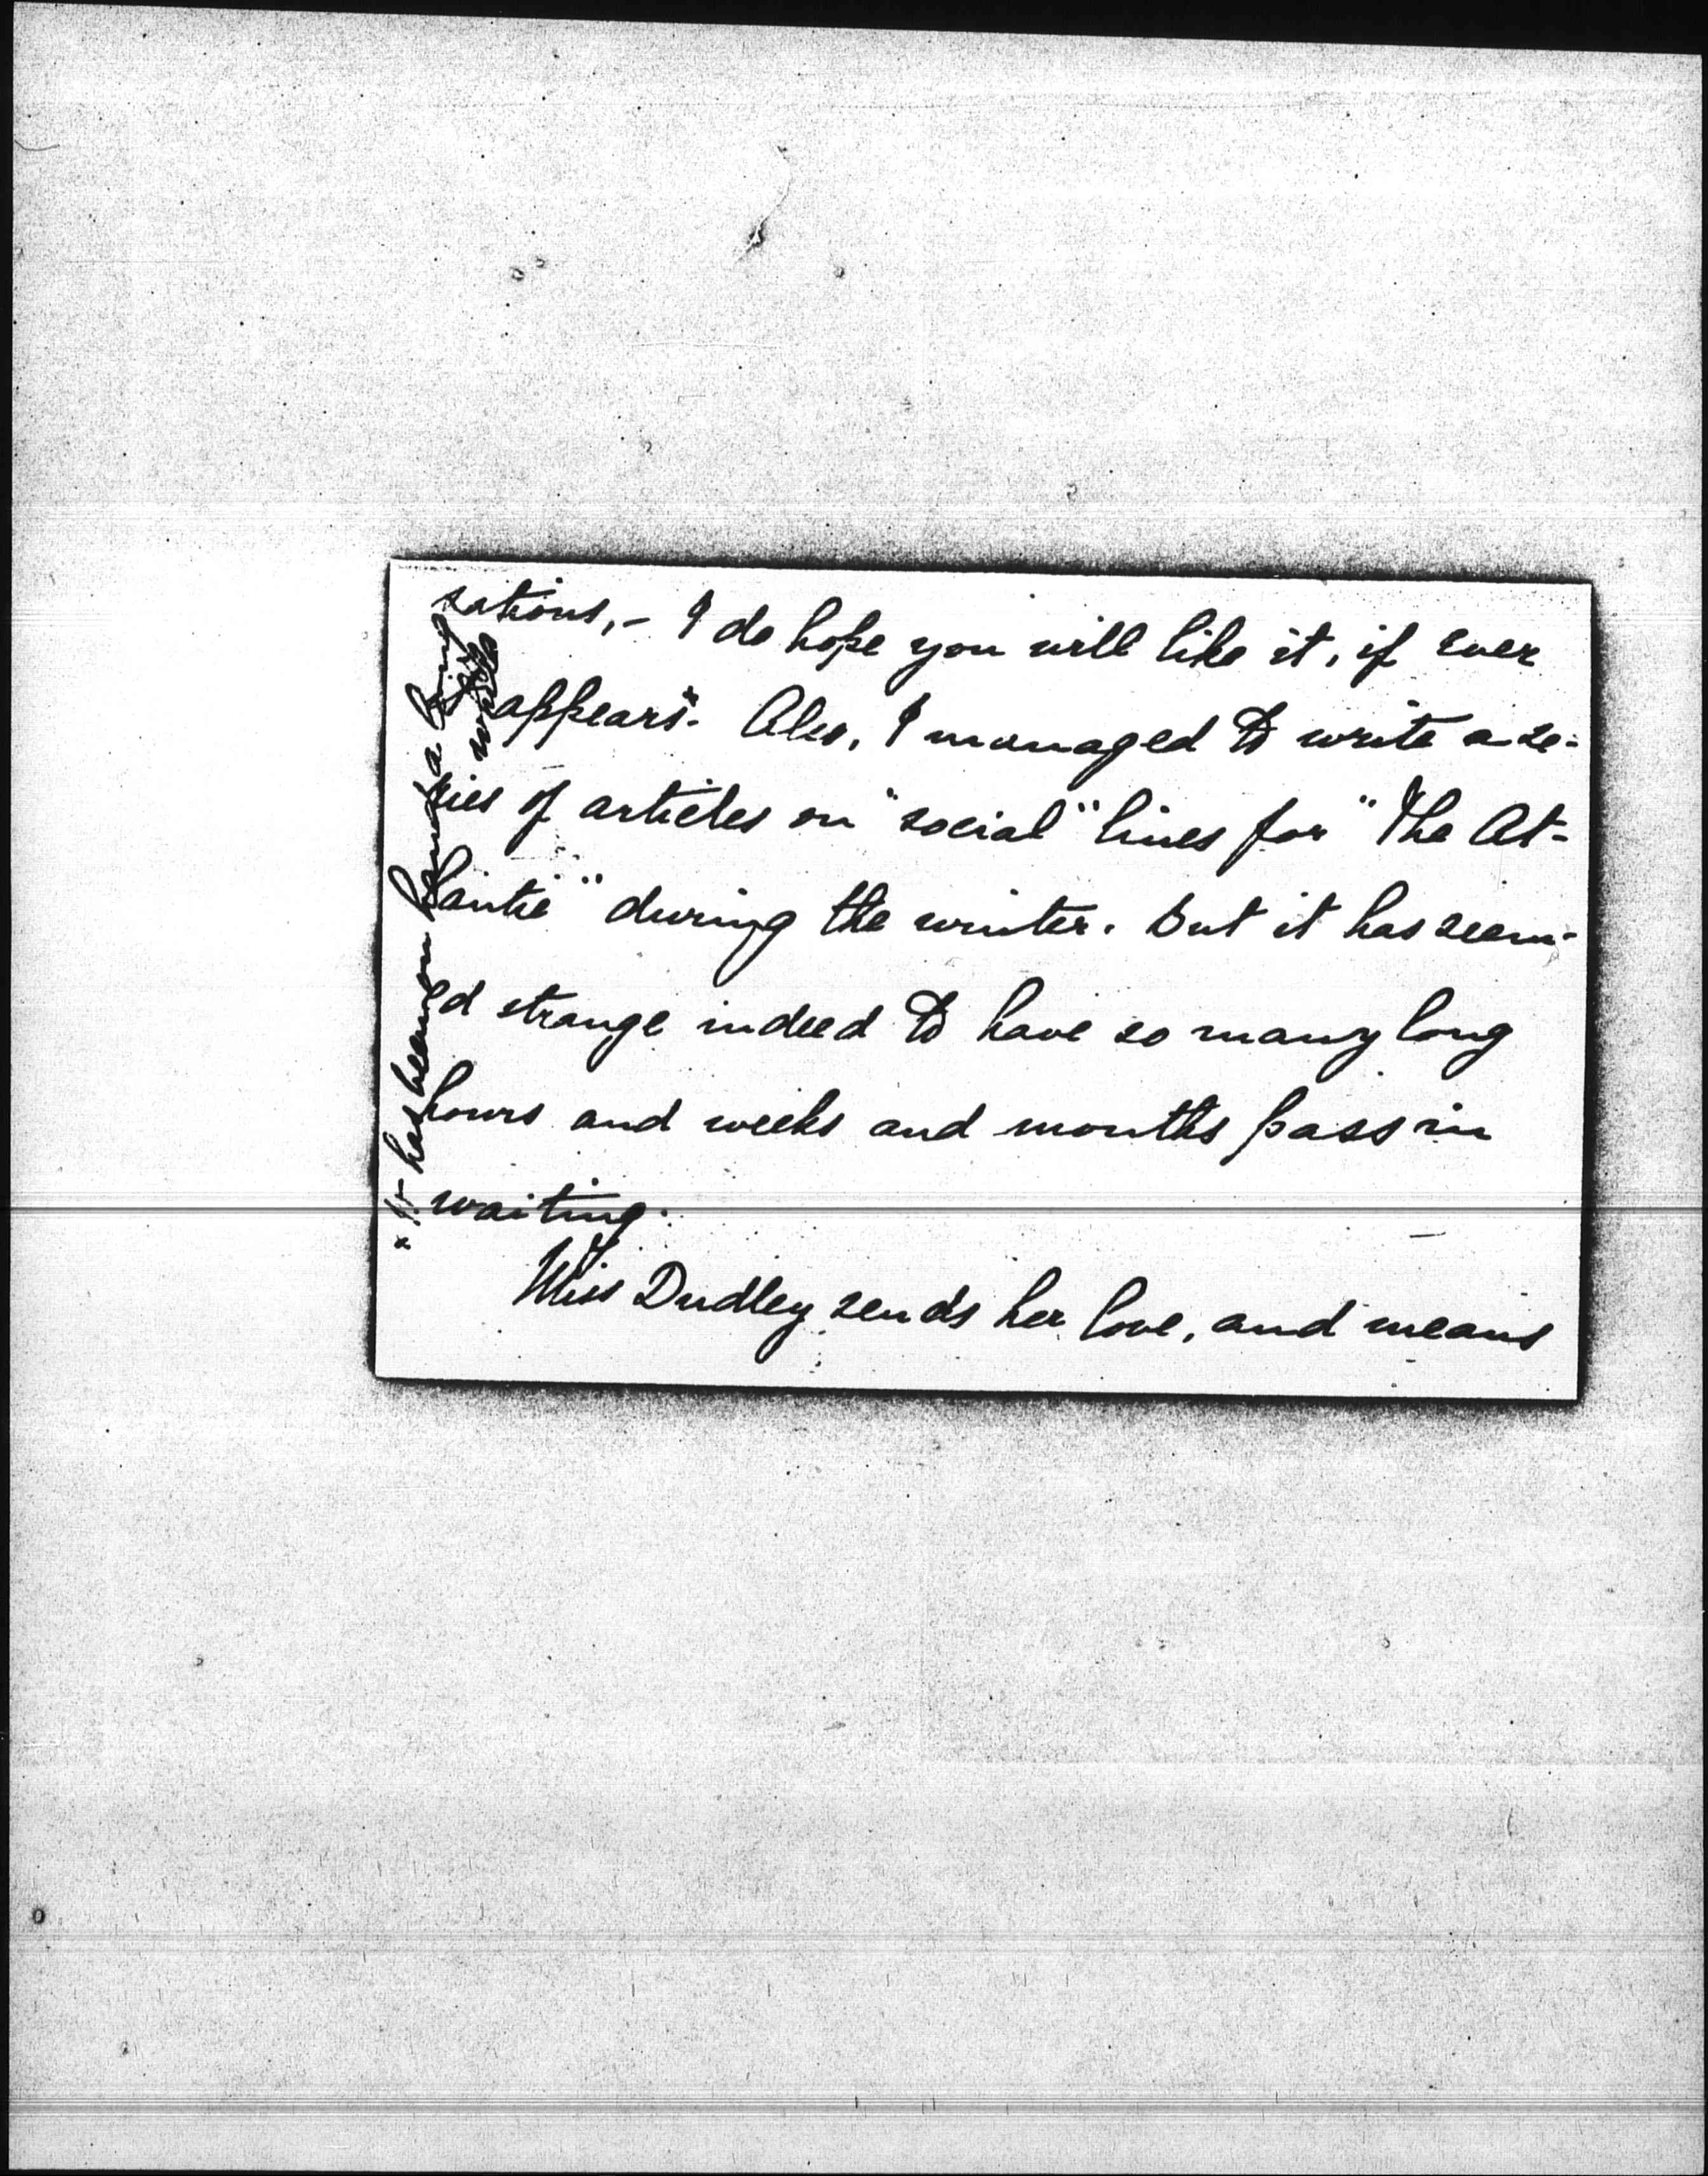 sations,- I do hope you will like it, if ever
appears.* Also, I managed to write a se-
ries of articles on "social" lines for "The At-
lantic" during the winter. But it has seem-
ed strange indeed to have so many long
hours and weeks and months pass in
waiting.
Miss Dudley sends her love, and means
* It has been on hand a long
while